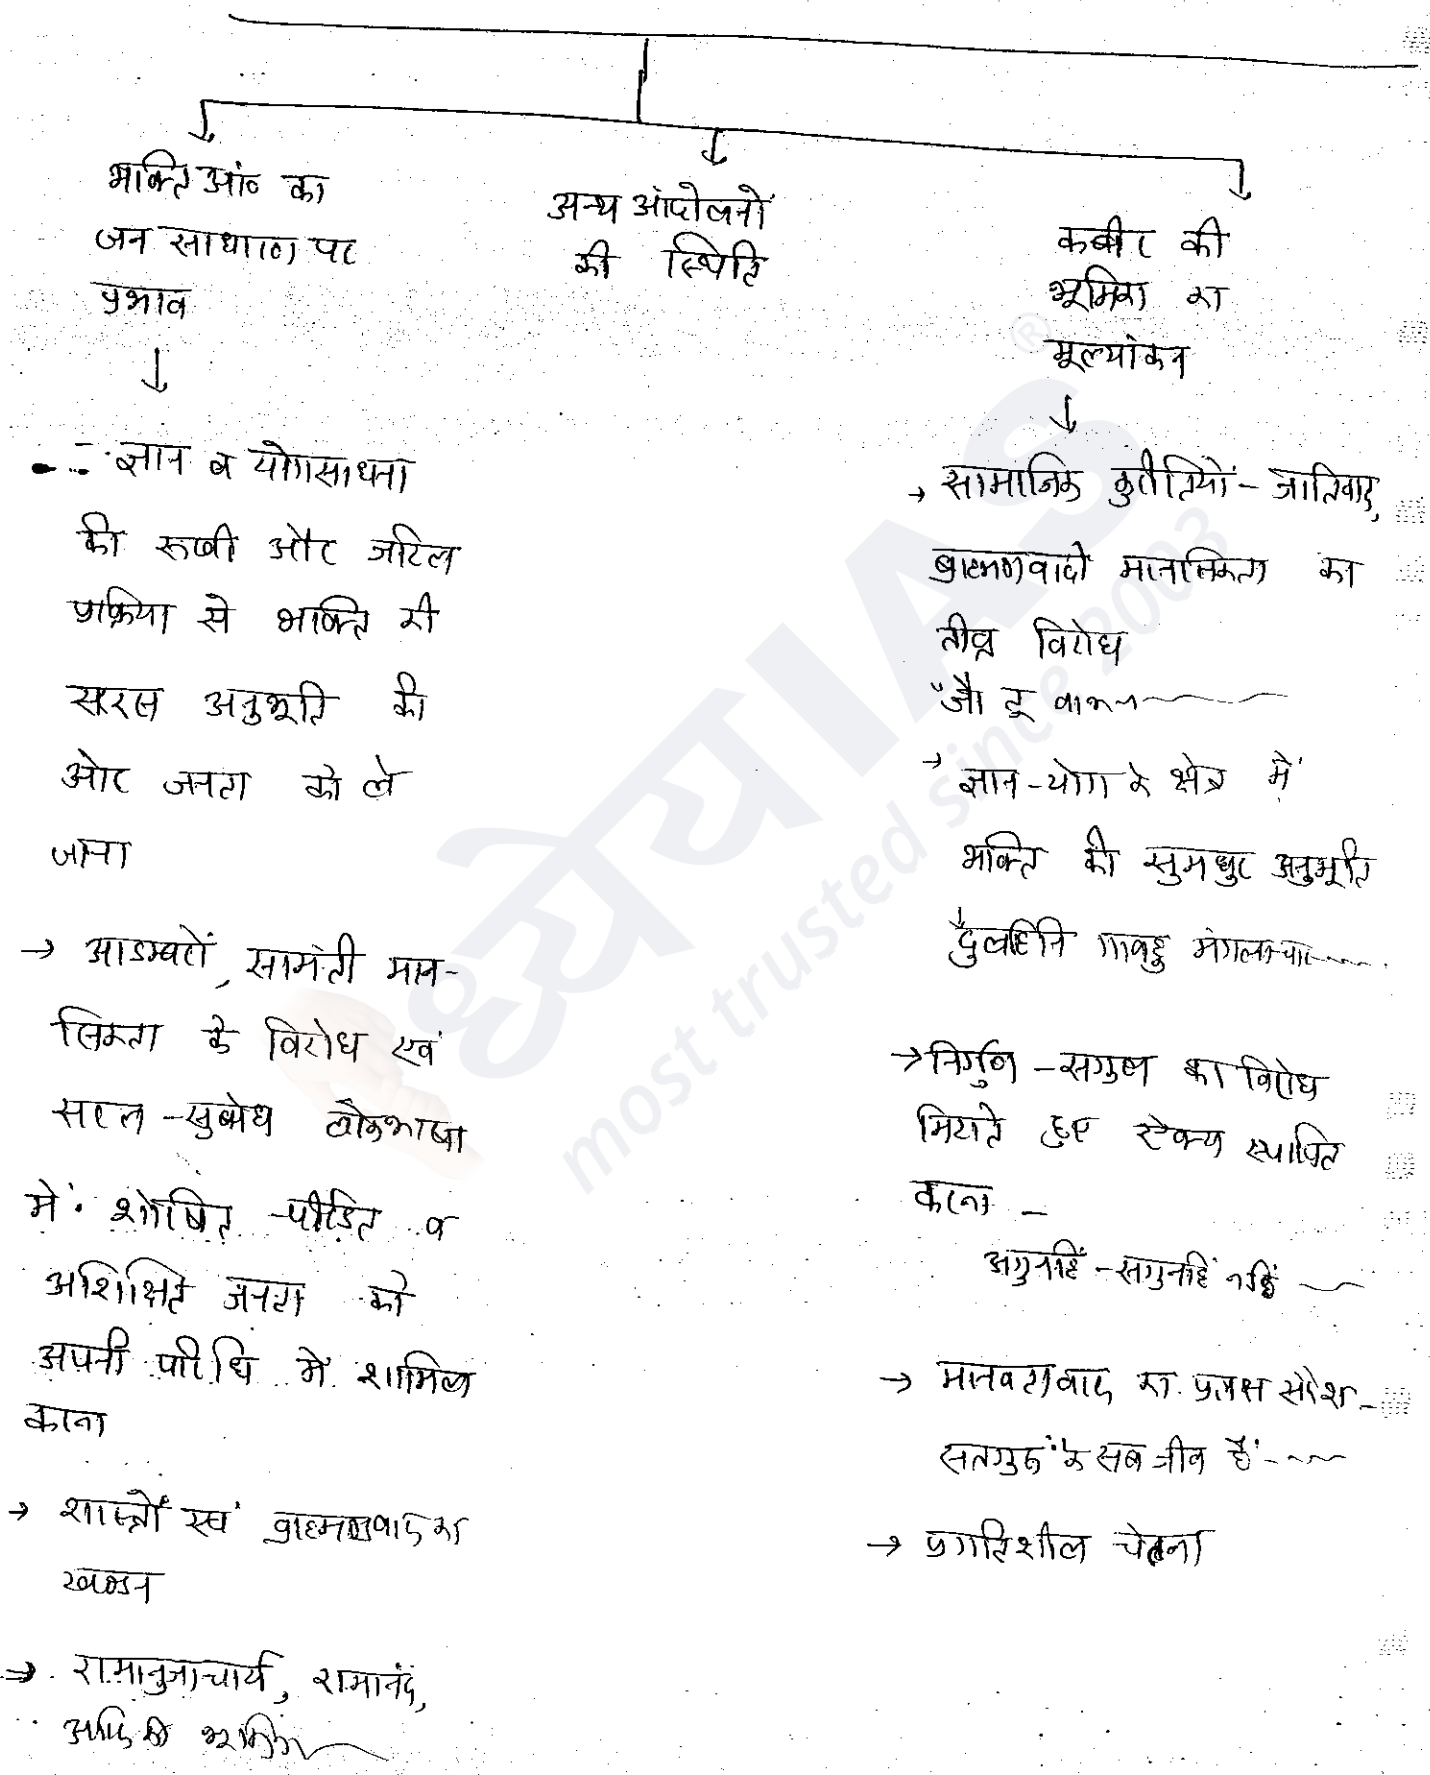 भक्ति आं० का
जन साधारण पर
प्रभाव
ज्ञान व योगसाधना
की रूखी और जटिल
प्रक्रिया से भक्ति की
सरस अनुभूति की
ओर जनता को ले
जाना
→ आडम्बरों, सामंती मान-
सिकता के विरोध एवं
सरल - सुबोध लोकभाषा
में शोषित - पीडित व
अशिक्षित जनता को
अपनी परिधि में शामिल
करना
→ शास्त्रों एवं ब्राह्मणवाद का
खण्डन
→ रामानुजाचार्य, रामानंद,
आदि की भूमिका
अन्य आंदोलनों
की स्थिति
कबीर की
भूमिका का
मूल्यांकन
→ सामाजिक कुरीतियों - जातिवाद,
ब्राह्मणवादी मानसिकता का
तीव्र विरोध
"जौ तू
→ ज्ञान - योग के क्षेत्र में
भक्ति की सुमधुर अनुभूति
दुलहिनि गावहु मंगलचार
→ निर्गुण - सगुण का विरोध
मिटाते हुए ऐक्य स्थापित
करना -
अगुनहिं - सगुनहिं नहिं
→ मानवतावाद का प्रत्यक्ष संदेश -
के सब जीव हैं
→ प्रगतिशील चेतना
ध्येय IAS
®
most trusted since 2003